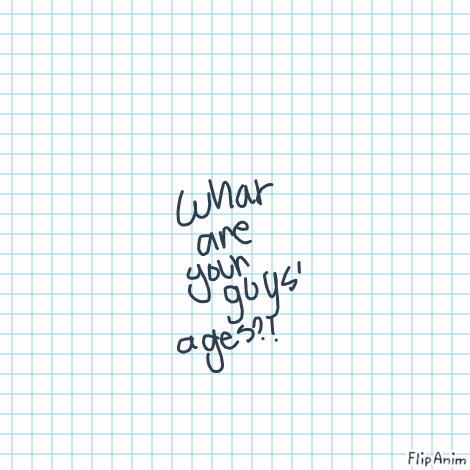 What
are
your
guys'
ages??
FlipAnim